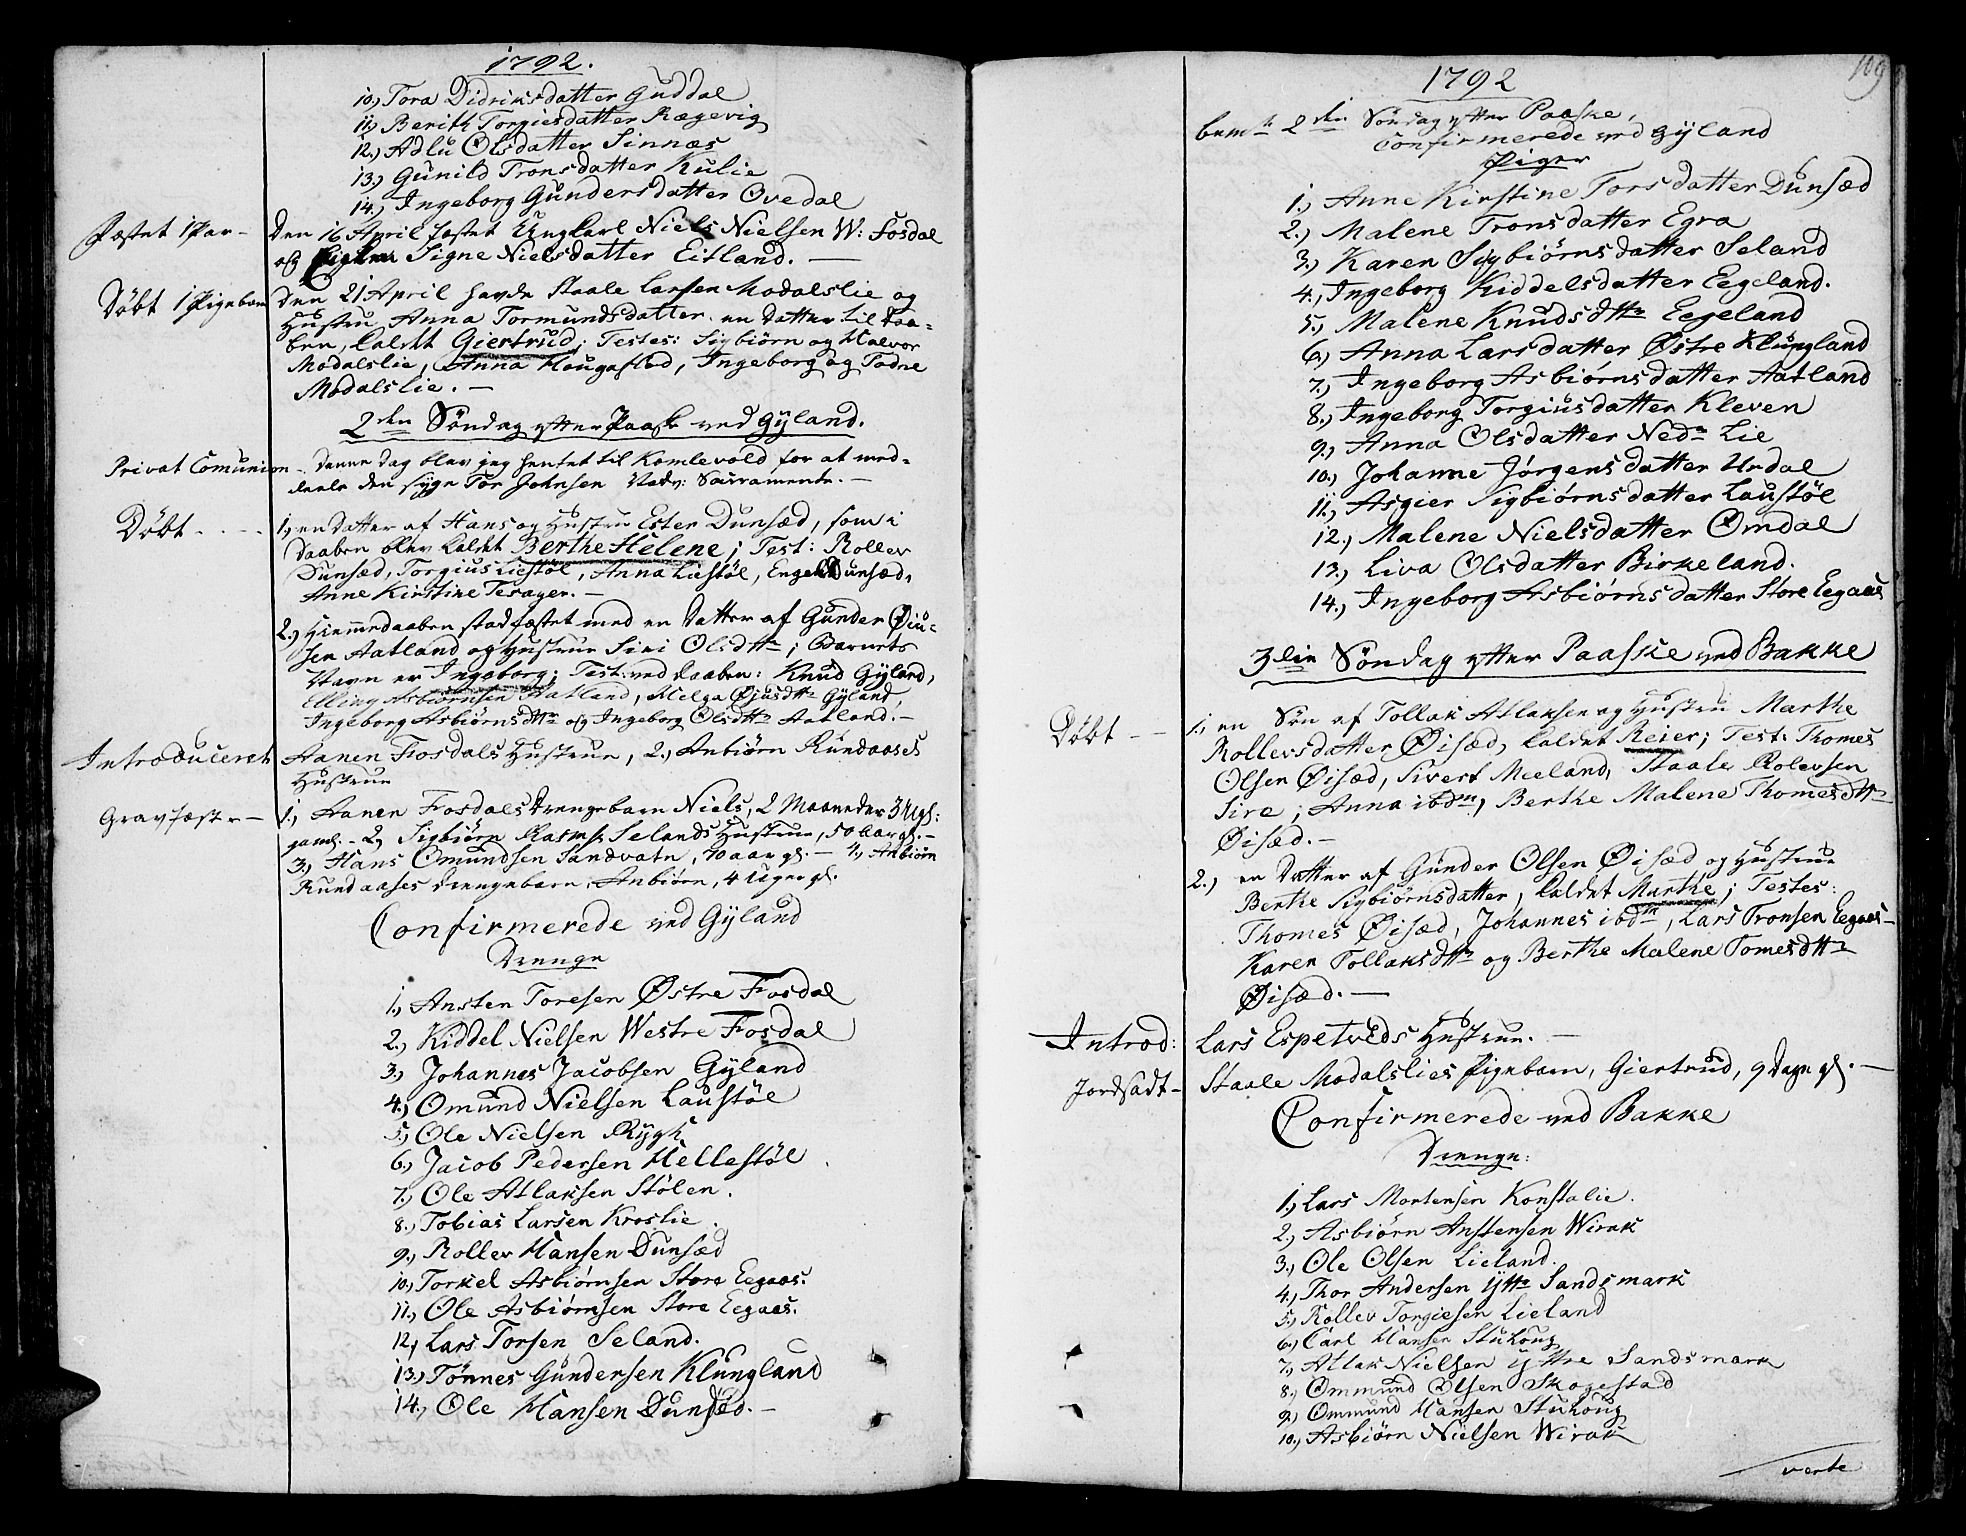 1792.
10.) Tora Didriksdatter Guddal
11.) Berith Torgiesdatter Rægevig
12.) Adlu Olsdatter Sinnæs
13.) Gunild Tronsdatter Kulie
14.) Ingeborg Gundersdatter Ovedal
Fæstet 1 Par – Den 16 April fæstet Ungkarl Niels Nielsen W: Fosdal
og Signe Nielsdatter Eitland. –
Døbt 1 Pigebarn Den 21 April havde Staale Larsen Modalslie og
Hustru Anna Tormundsdatter en Datter til Daa-
ben, kaldet Giertrud; Testes: Sigbiørn og Halvor
Modalslie, Anna Hougastad, Ingeborg og Todne
Modalslie. –
2den Søndag efter Paaske ved Gyland.
Privat Comunion – Denne Dag blev jeg hentet til Komlevold for at med-
deele den syge Tor Johnsen Nadv: Sacramente. –
Døbt - - - - 1, en Datter af Hans og Hustru Ester Dunsæd, som i
Daaben blev kaldet Berthe Helene; Test: Rollev
Dunsæd, Torgius Liestøl, Anna Liestøl, Engel Dunsæd,
Anne Kirstine Tesager. –
2.) Hiemmedaaben stadfæstet med en Datter af Gunder Øiu-
sen Aatland og Hustrue Siri Olsdttr; Barnets
Navn er Ingeborg; Test: ved Daaben: Knud Gyland,
Elling Asbiørnsen Aatland, Helga Øiusdttr Gyland,
Ingeborg Asbiørnsdttr og Ingeborg Olsdttr Aatland. –
Introduceret Aanen Fosdals Hustrue, 2.) Anbiørn Rundaases
Hustrue
Gravfæstr – 1, Aanen Fosdals Drengebarn Niels, 2 Maaneder 3 Ug:
gaml. – 2, Sigbiørn Selands Hustrue, 50 Aar gl. –
3.) Hans Omundsen Sandvatn, 70 aar gl. – 4, Anbiørn
Rundaases Drengebarn, Anbiørn, 4 Uger gl.
Confirmerede ved Gyland
Drenge
1.) Ansten Toresen Østre Fosdal
2.) Kiddel Nielsen Westre Fosdal
3.) Johannes Jacobsen Gyland
4.) Omund Nielsen Laustøl
5.) Ole Nielsen Rygh
6.) Jacob Pedersen Hellestøl
7.) Ole Atlaksen Stølen.
8.) Tobias Larsen Kroslie.
9.) Rollev Hansen Dunsæd
10.) Torkel Asbiørnsen Store Eegaas.
11.) Ole Asbiørnsen Store Eegaas.
12, Lars Torsen Seland.
13.) Tønnes Gundersen Klungland
14., Ole Hansen Dunsæd. –
109
1792
bemte 2den Søndag efter Paaske,
Confirmerede ved Gyland
Piger
1.) Anne Kirstine Torsdatter Dunsæd
2.) Malene Tronsdatter Egra
3.) Karen Sigbiørnsdatter Seland
4., Ingeborg Kiddelsdatter Eegeland.
5.) Malene Knudsdttr Eegeland
6.) Anna Larsdatter Østre Klungland
7.) Ingeborg Asbiørnsdatter Aatland
8.) Ingeborg Torgiusdatter Kleven
9.) Anna Olsdatter Nedr Lie
10.) Johanne Jørgensdatter Urdal
11.) Asgier Sigbiørnsdatter Laustøl
12.) Malene Nielsdatter Omdal
13.) Liva Olsdatter Birkeland.
14.) Ingeborg Asbiørnsdatter Store Eegaas
3die Søndag efter Paaske ved Bakke
Døbt – – 1, en Søn af Tollak Atlaksen og Hustru Marthe
Rollevsdatter Øisæd, kaldet Reier; Test: Thomes
Olsen Øisæd, Sivert Mæland, Staale Rolevsen
Sire; Anna ibdm, Berthe Malene Thomesdttr
Øisæd. –
2.) en Datter af Gunder Olsen Øisæd og Hustrue
Berthe Sigbiørnsdatter, kaldet Marthe; Testes:
Thomes Øisæd, Johannes ibdm, Lars Tronsen Eegaas –
Karen Tollaksdttr og Berthe Malene Tomesdttr
Øisæd. –
Introd: Lars Espetveds Hustrue. –
Jordsadt – Staale Modalslies Pigebarn, Giertrud, 9 Dage gl. –
Confirmerede ved Bakke
Drenge:
1.) Lars Mortensen Konstalie.
2.) Asbiørn Anstensen Wirak
3.) Ole Olsen Lieland.
4.) Thor Andersen Yttr Sandsmark
5.) Rollev Torgiesen Lieland
6.) Carl Hansen Stuhoug
7.) Atlak Nielsen yttre Sandsmark
8.) Ommund Olsen Skogestad
9.) Ommund Hansen Stuhoug
10.) Asbiørn Nielsen Wirak
verte